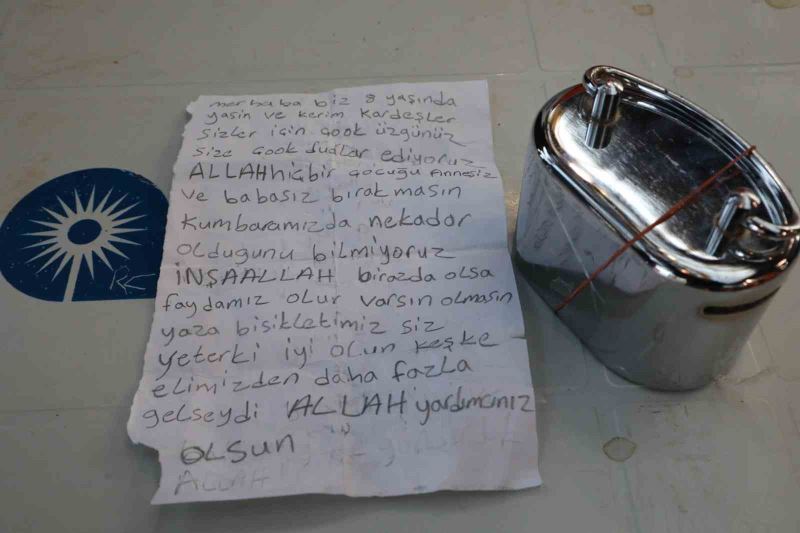 merhaba biz 8 yaşında
yasin ve kerim kardeşler
sizler için çook üzgünüz
size çook dudlar ediyoruz
ALLAH hiçbir çocuğu Annesiz
ve babasız bırakmasın
kumbaramızda nekador
olduğunu bilmiyoruz
İNŞAALLAH birazda olsa
faydamız olur varsın olmasın
yaza bisikletimiz siz
yeterki iyi olun keşke
elimizden daha fazla
gelseydi ALLAH yardımcınız
OLSUN
ALLAH